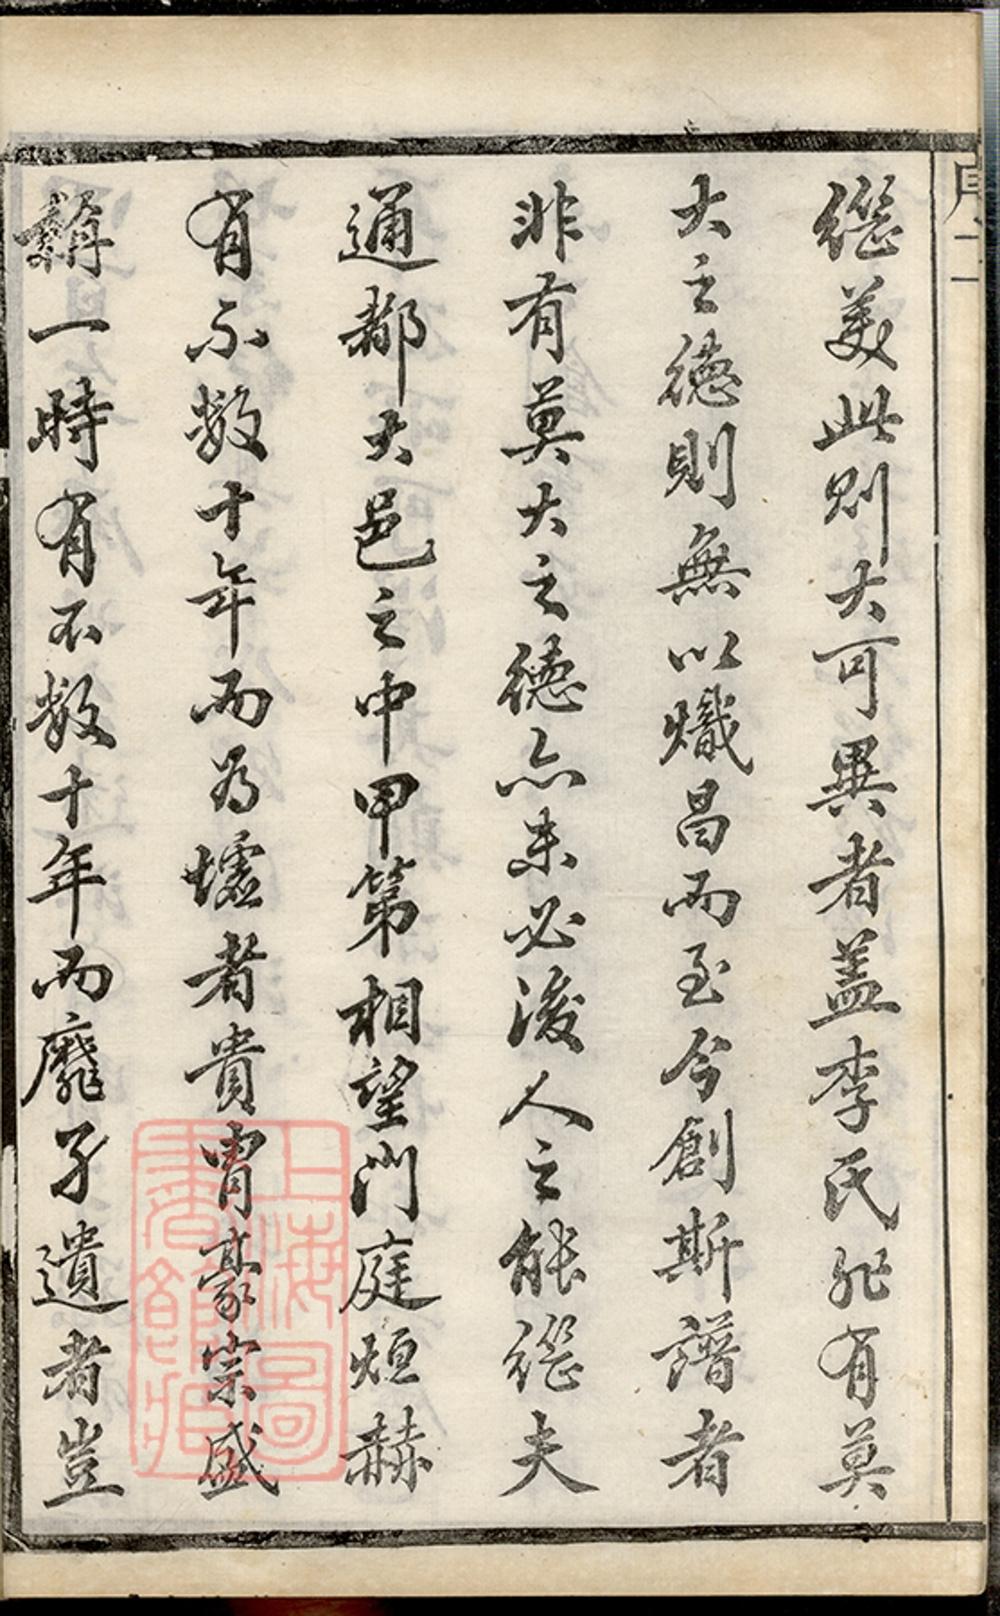 繼美此則大可異者蓋李氏非有莫
大之德則無以熾昌而至今創斯譜者
非有莫大之德亦未必後人之能繼夫
通都大邑之中甲第相望門庭烜赫
有不數十年而為墟者貴胄豪宗盛
稱一時有不數十年而靡孑遺者豈
上海圖書館藏